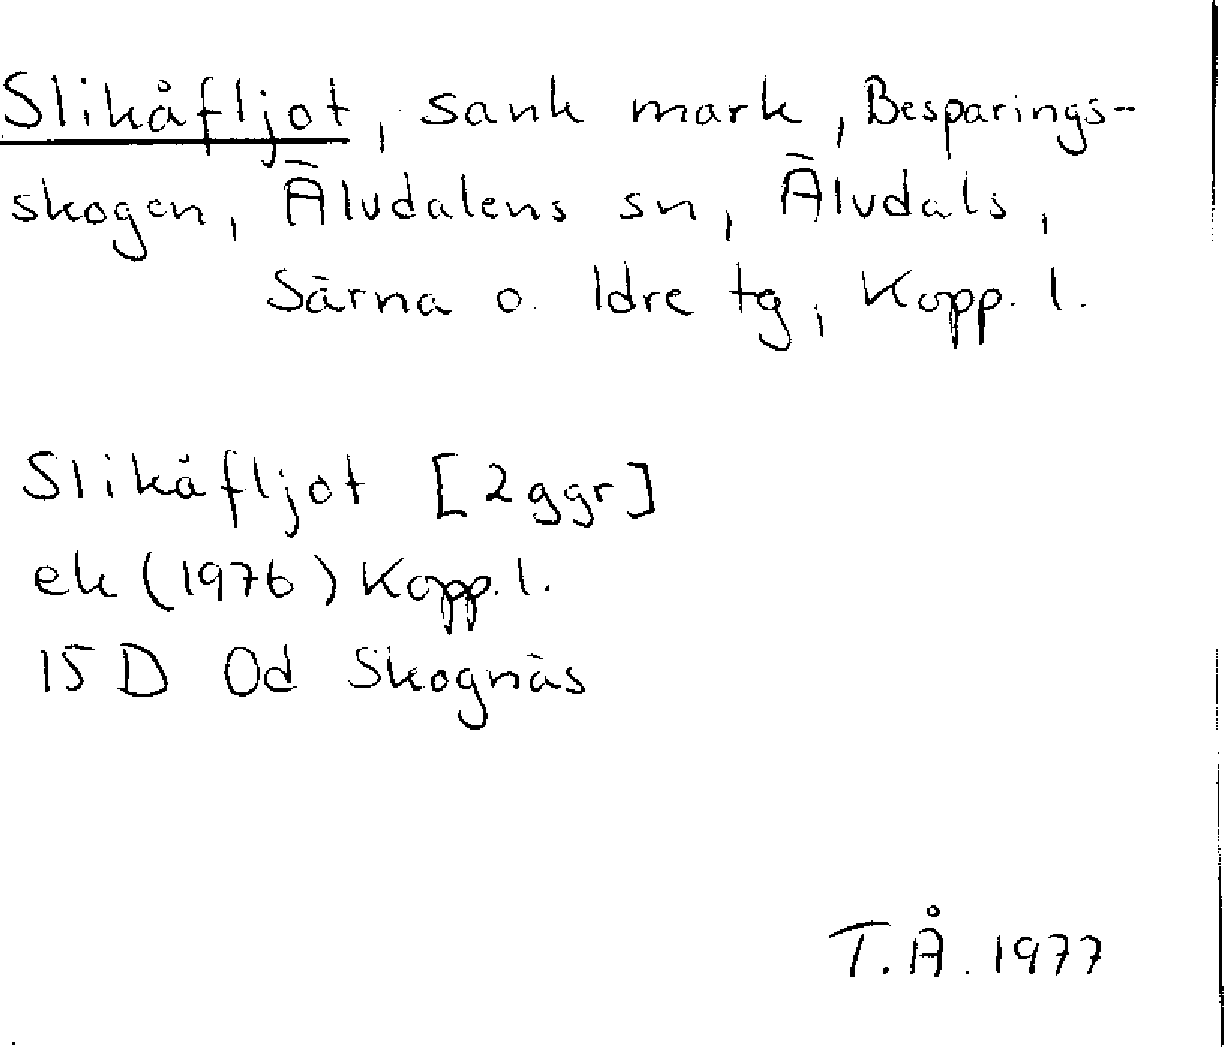 Slikåfljot, sank mark, Besparings-
skogen, Älvdalens sn, Älvdals,
Särna o. Idre tg, Kopp. l.
Slikåfljot [2ggr]
ek (1976) Kopp. l.
15 D 0d Skognäs
T.Å. 1977